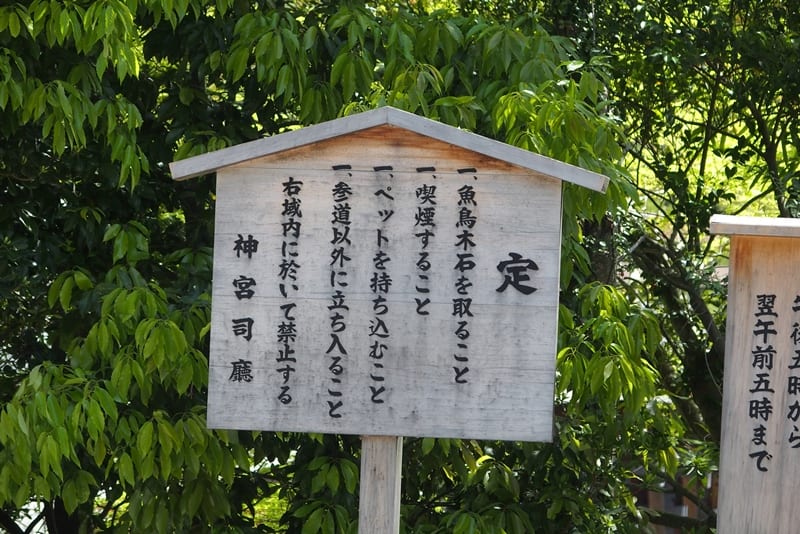 定
一、魚鳥木石を取ること
一、喫煙すること
一、ペットを持ち込むこと
一、参道以外に立ち入ること
右域内に於いて禁止する
神宮司廳
午後五時から
翌午前五時まで